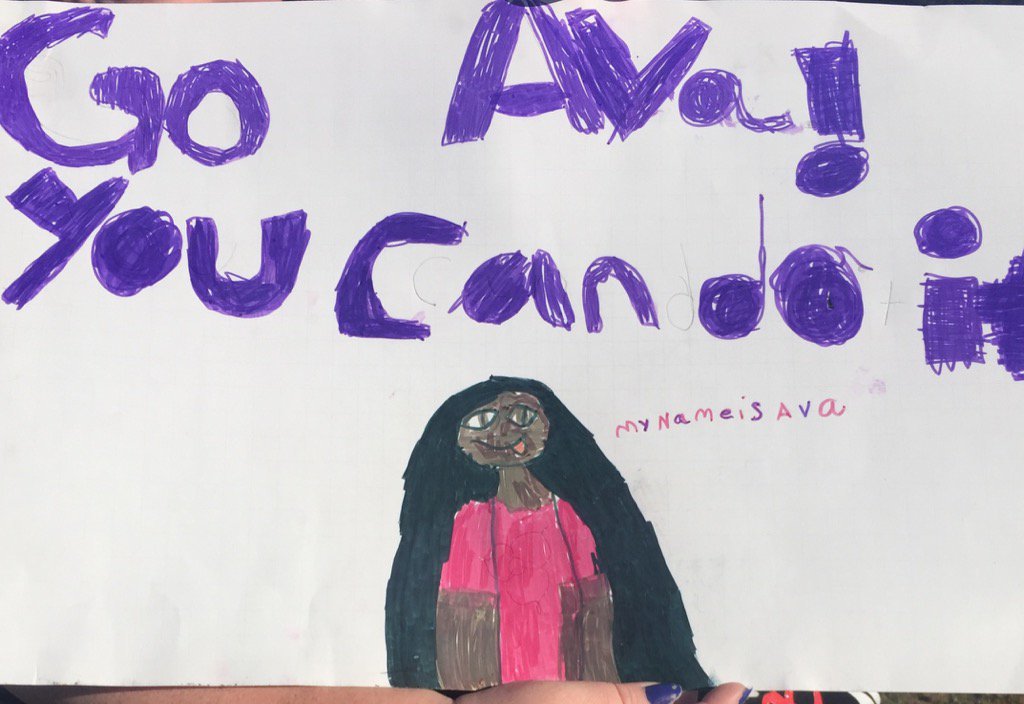 Go Ava!
You can do it
MY NAMe is AVa